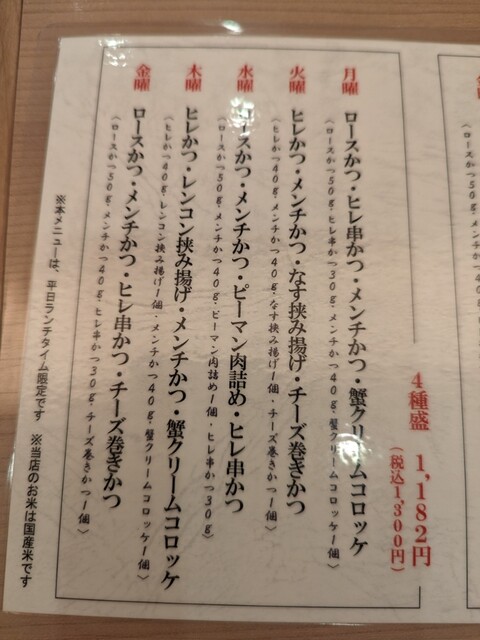 4種盛 1,182円
(税込1,300円)
月曜 ロースかつ・ヒレ串かつ・メンチかつ・蟹クリームコロッケ
(ロースかつ50g・ヒレ串かつ30g・メンチかつ40g・蟹クリームコロッケ1個)
火曜 ヒレかつ・メンチかつ・なす挟み揚げ・チーズ巻きかつ
(ヒレかつ40g・メンチかつ40g・なす挟み揚げ1個・チーズ巻きかつ1個)
水曜 ロースかつ・メンチかつ・ピーマン肉詰め・ヒレ串かつ
(ロースかつ50g・メンチかつ40g・ピーマン肉詰め1個・ヒレ串かつ30g)
木曜 ヒレかつ・レンコン挟み揚げ・メンチかつ・蟹クリームコロッケ
(ヒレかつ40g・レンコン挟み揚げ1個・メンチかつ40g・蟹クリームコロッケ1個)
金曜 ロースかつ・メンチかつ・ヒレ串かつ・チーズ巻きかつ
(ロースかつ50g・メンチかつ40g・ヒレ串かつ30g・チーズ巻きかつ1個)
※本メニューは、平日ランチタイム限定です ※当店のお米は国産米です